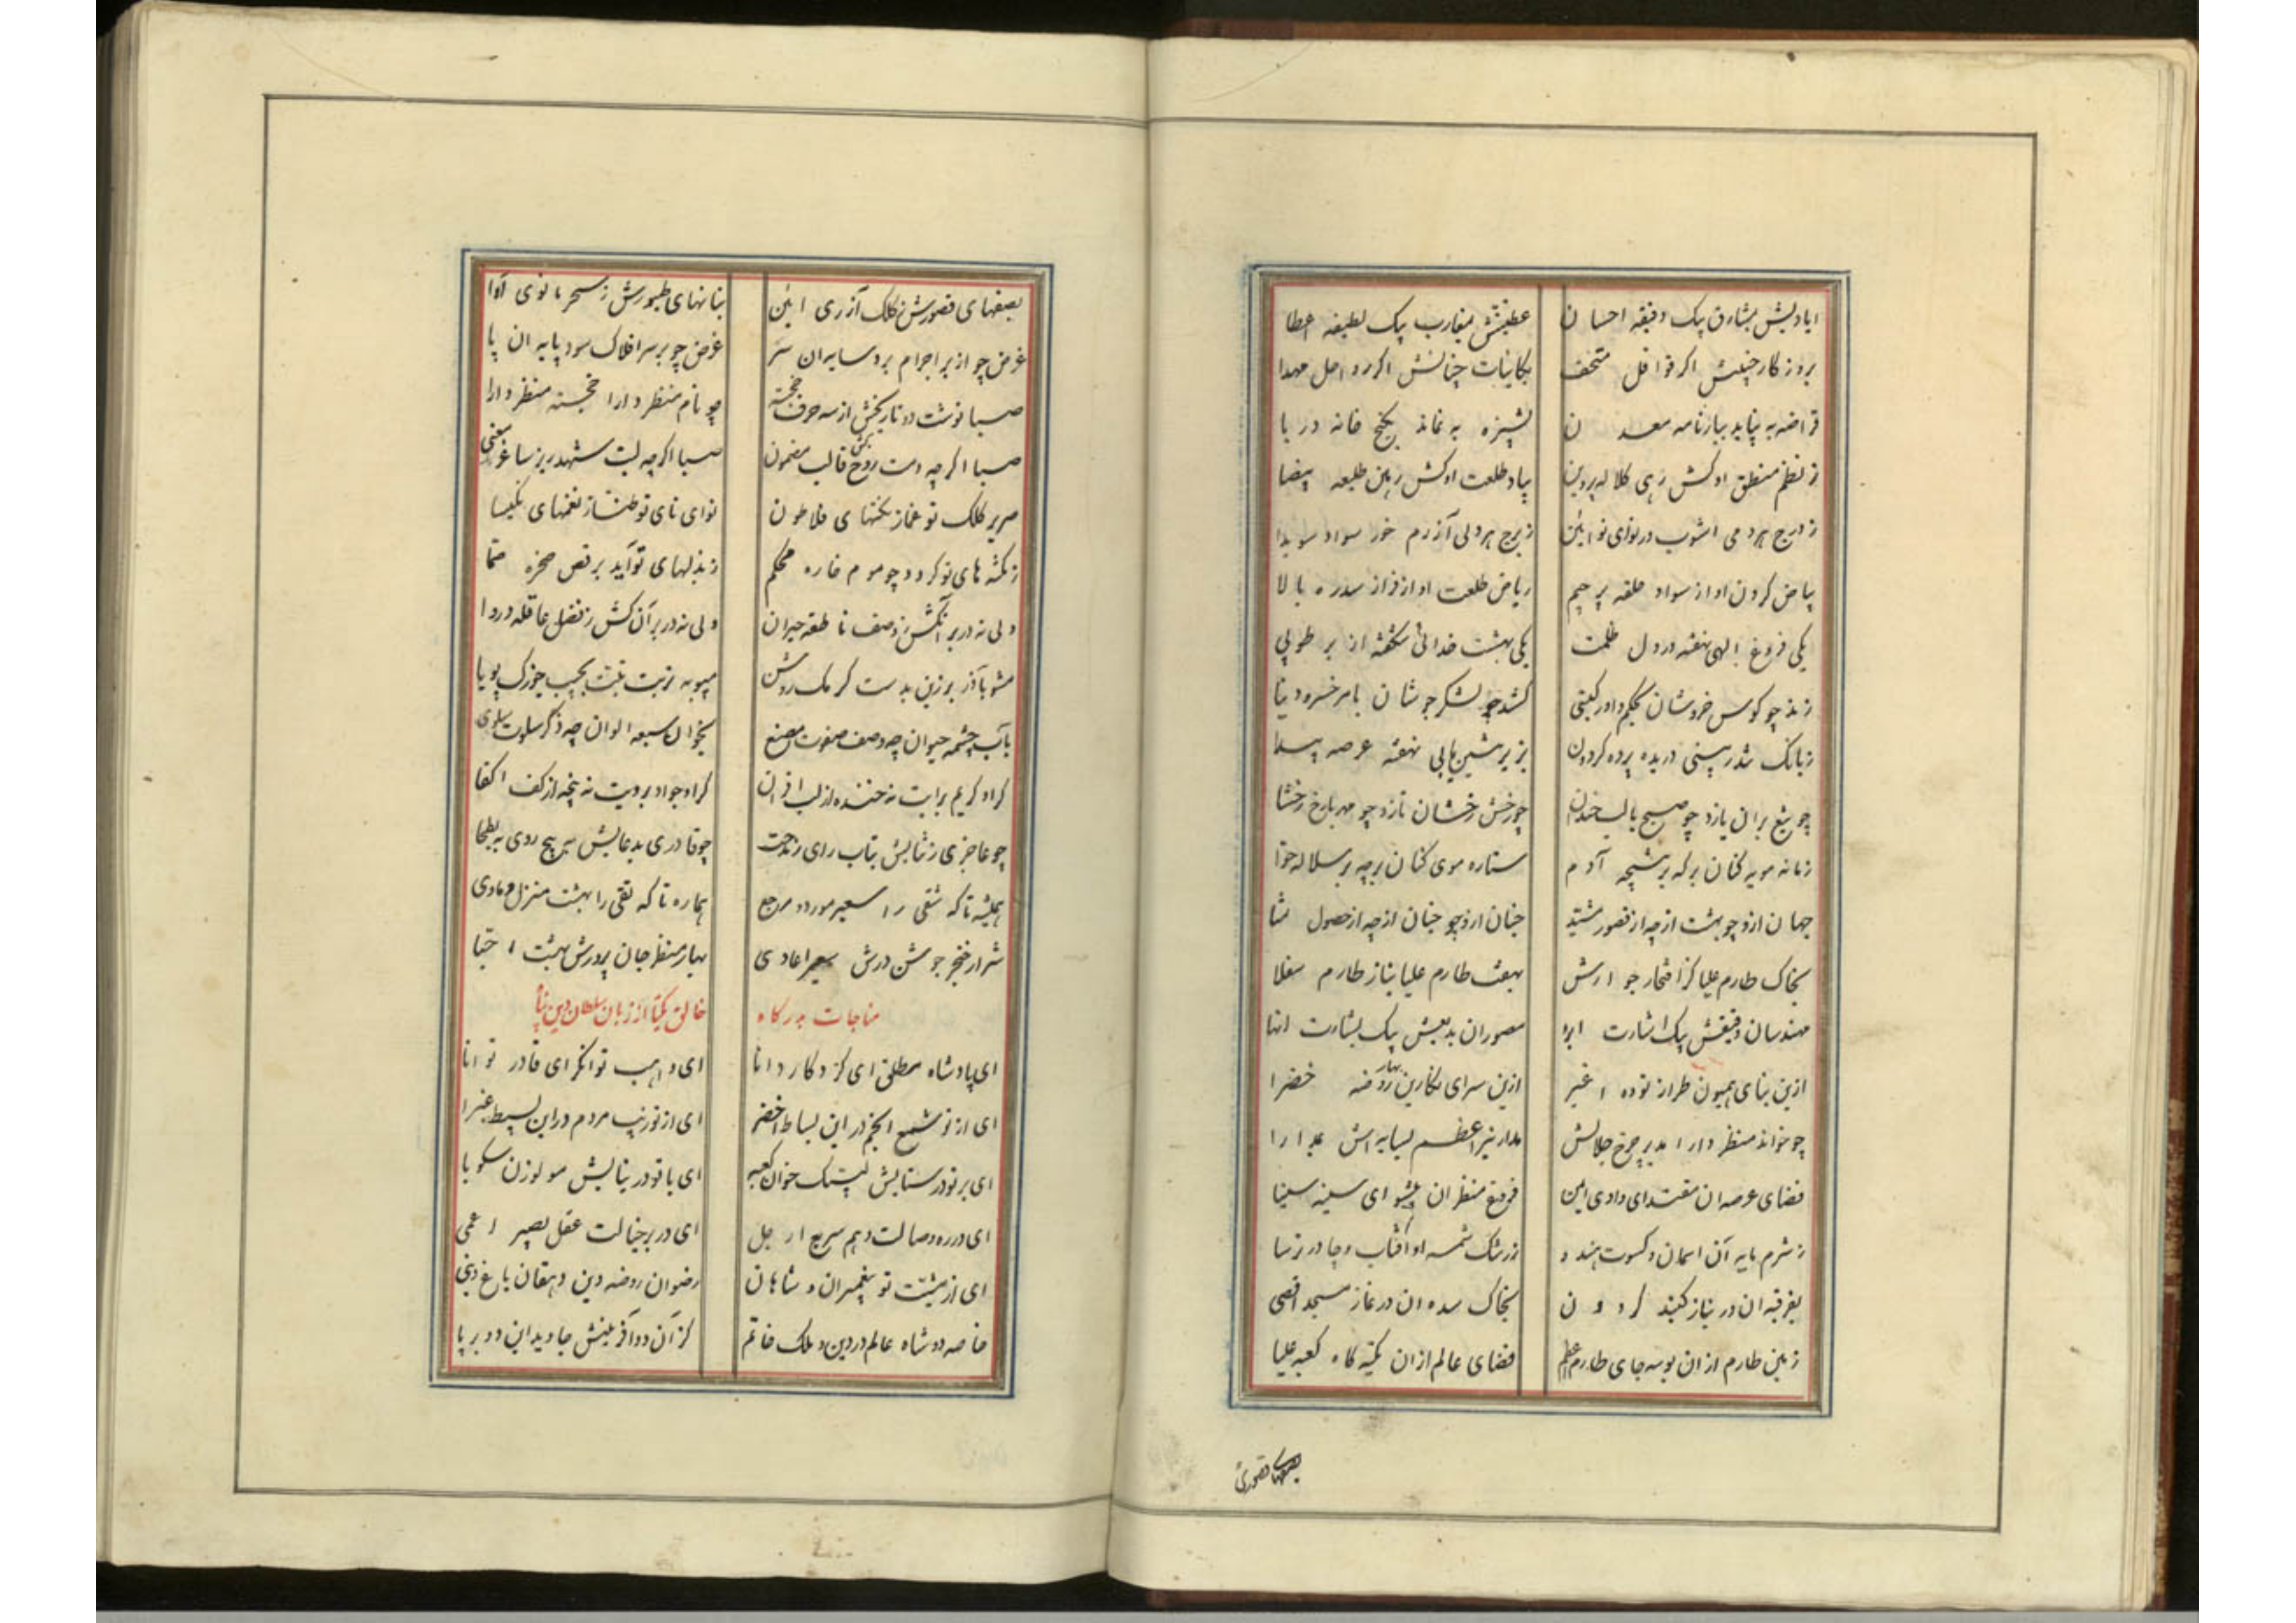 ایادیش بمشارق بیک دقیقه احسان عطیتش بمغارب بیک لطیفه اعطا
بروزکار اکر قوافل متحف بکاینات اکر رواحل مهدا
قراضه به نیاید ببازنامه معدن پشیزه به نماند بکنج خانه دریا
ز نظم منطق او کش رهی کلاله پروین بیاد طلعت او کش رهین طلیعه بیضا
ز درج هر دمی اشوب در نوای نوائین ز برج هر دلی آزرم خور سواد سویدا
بیاض کردن او از سواد حلقه پرچم ریاض طلعت او از فراز سدره بالا
یکی فروغ الهی نهفته در دل ظلمت یکی بهشت خدائی شکفته از بر طوبی
زند چو کوس خروشان بحکم داور کیتی کشد چو لشکر جوشان بامر خسرو دنیا
زبانک دریده پرده کردون بزیر نهفته عرصه
چو تیغ بران یازد چو صبح با لب خندان چو رخش رخشان تازد چو مهر با رخ رخشا
زمانه مویه کنان بر که بر نتیجه آدم ستاره موی کنان بر چه بر سلاله حوا
جهان ازو چو بهشت از چه از قصور مشید جنان ازو چو جنان از چه از حصول
بخاک طارم علیا کز افتخار جوارش بهفت طارم علیا بناز طارم سفلا
مهندسان دقیقش بیک اشارت ابرو مصوران بدیعش بیک بشارت انها
ازین بنای همیون طراز توده اغبر ازین سرای نکارین بهار روضه خضرا
چو خواند منظر دارا مدیر چرخ جلالش مدار نیر اعظم بسایه اش مدارا
فضای عرصه ان مقتدای وادی ایمن فروغ منظر ان پیشوای سینه سینا
ز شرم پایه آن اسمان و کسوت هندو ز رشک شمسه او آفتاب و چادر ترسا
بغرفه ان در نیاز کنبد کردون بخاک سده ان در نماز مسجد اقصی
زمین طارم از ان بوسه جای طارم اعظم فضای عالم از ان تکیه کاه کعبه علیا
بصفهای قصورش
بصفهای قصورش ز کلک آزری ائین بنانهای طیورش ز سحر مانوی آوا
غرض چو از بر اجرام برد سایه ان سر غرض چو بر سر افلاک سود پایه ان پا
صبا نوشت دو تاریخش از سه حرف خجسته چو نام منظر دارا خجسته منظر دارا
صبا اکر چه دمت روح بخش قالب مضمون صبا اکر چه لبت شهدریز ساغر معنی
صریر کلک تو غماز نکتهای فلاطون نوای نای تو طناز نغمهای نکیسا
ز نکته های تو کردد چو موم خاره محکم ز بذلهای تو آید برقص صخره صما
ولی نه در بر آنکش ز وصف ناطقه حیران ولی نه در بر آن کش ز نقل عاقله دروا
مشو بآذر برزین بدست کرمک روشن مپو به تربت تبت بجیب پویا
بآب چشمه حیوان چه وصف صفوت مصنع بخوان سبعه الوان چه ذکر سلوت سلوی
کراد کریم برایت نه خنده از لب اقران کراد جواد برویت نه پنجه از کف اکفا
چو عاجزی ز ثنایش بتاب رای ز مدحت چو قادری بدعایش مپیچ روی به بطحا
همیشه تا که شقی را سعیر مورد و مرجع هماره تا که تقی را بهشت منزل و ماوی
شرار خنجر جوشن درش سعیر اعادی بهار منظر جان پرورش بهشت احبا
مناجات بدرکاه خالق یکتا از زبان سلطان دین پناه
ای پادشاه مطلق ای کردکار دانا ای واهب توانکر ای قادر توانا
ای از تو شمع انجم در این بساط اخضر ای از تو زیب مردم در این بسیط غبرا
ای بر تو در ستایش لبیک خوان کعبه ای با تو در نیایش مولوزن سکوبا
ای در ره وصالت وهم سریع ارجل ای در بر خیالت عقل بصیر اعمی
ای از مشیت تو پیغمبران و شاهان رضوان روضه دین دهقان باغ دنیی
خاصه دو شاه عالم در دین و ملک خاتم کز آن دو آفرینش جاوید این دو بر پا